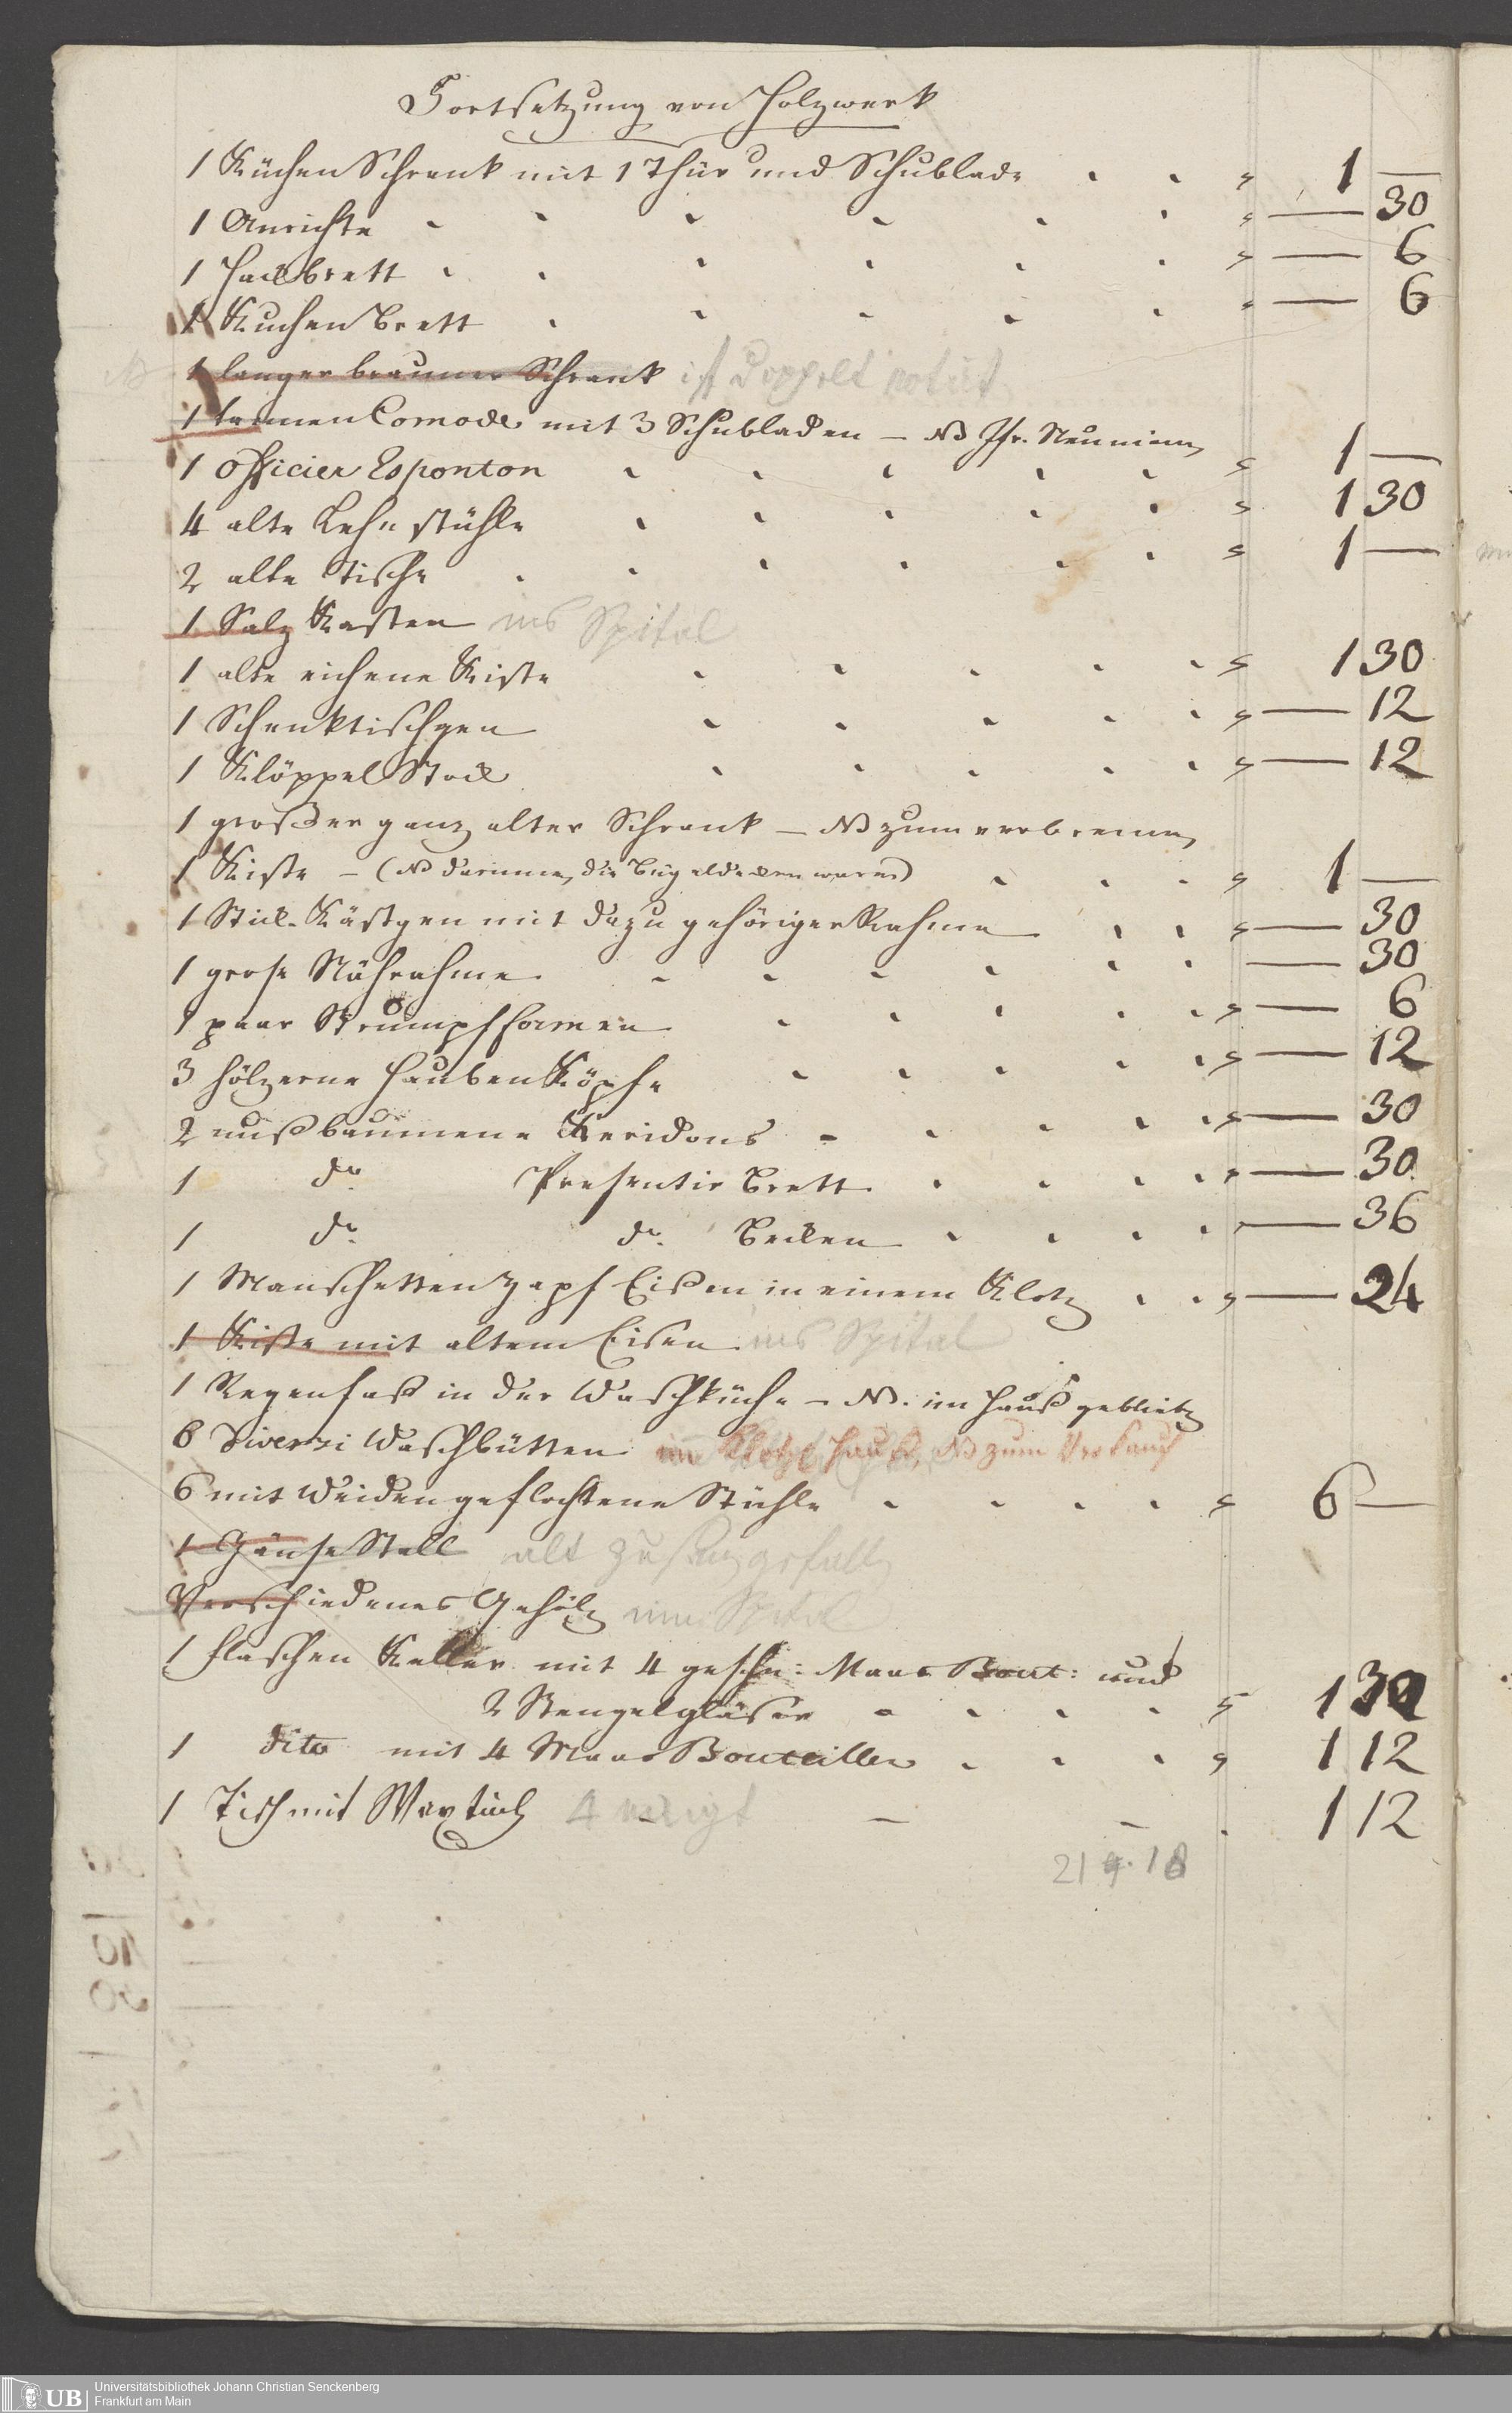 Fortsetzung von Holzwerk
1 Küchen Schrank mit 1 Thür und Schublade 1 —
1 Anrichte — 30
1 Hackbrett — 6
1 Kuchen Brett — 6
1 langer brauner Schrank ist doppelt notirt
1 tannen Comode mit 3 Schubladen — NB Jfr. Neumann
1 Officier Esponton 1 —
4 alte Lehnstühle 1 30
2 alte Tische 1 —
1 Salz Kasten ins Spital
1 alte eichene Kiste 1 30
1 Schenktischgen — 12
1 Klöppel Stock — 12
1 großer ganz alter Schrank — NB zum verbrennen
1 Kiste — (NB darinnen die Bügeldecken waren) 1 —
1 Stick-Kästgen mit dazu gehöriger Rahme — 30
1 grose Nährahme — 30
1 paar Strumpfformen — 6
3 hölzerne Hauben Köpfe — 12
2 nußbaumene Geridons — 30
1 do. Presentir Brett — 30
1 do. do. Becken — 36
1 Manschetten Zapf Eißen in einem Klotz — 24
1 Kiste mit altem Eisen ins Spital
1 Regenfaß in der Waschküche — NB. im Hauß geblieben
8 Diversi Waschbütten im Hauß, NB zum Verkauf
6 mit Weiden geflochtene Stühle 6 —
1 Gänse Stall alt
Verschiedenes Gehölz Spital
1 Flaschen Keller mit 4 geschn: Maas Bout: und
2 Stengelgläser 1 30
1 dito mit 4 Maas Bouteillen 1 12
1 Tisch mit Wachstuch 1 12
21 18
UB Universitätsbibliothek Johann Christian Senckenberg
Frankfurt am Main